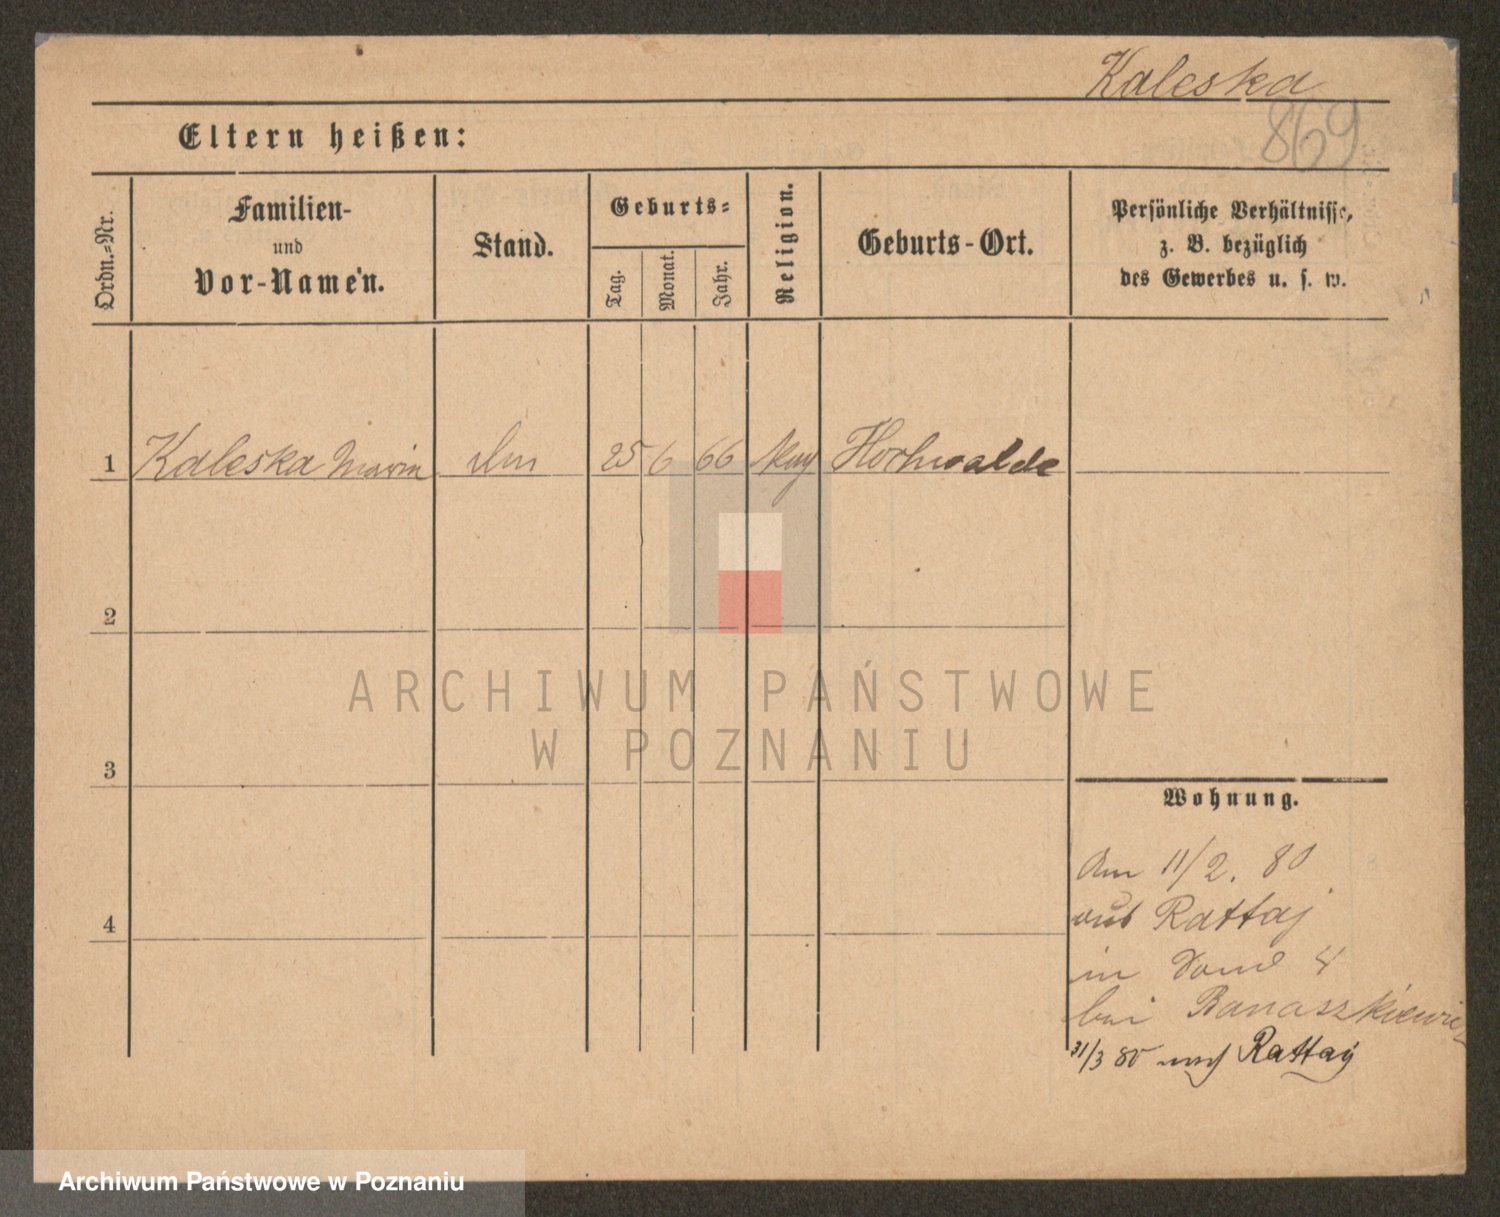 Kaleska
869
Eltern heißen:
Ordn.-Nr.
Familien-
und
Vor-Namen.
Stand.
Geburts-
Tag.
Monat.
Jahr.
Religion.
Geburts-Ort.
Persönliche Verhältnisse,
z. B. bezüglich
des Gewerbes u. s. w.
1 Kaleska Maria 25 6 66 Hochwalde
2
3
4
Wohnung.
Am 11/2. 80
aus Rattaj
in Dom 4
bei Banaszkiewic
31/3 80 nach Rattay
ARCHIWUM PAŃSTWOWE
W POZNANIU
Archiwum Państwowe w Poznaniu